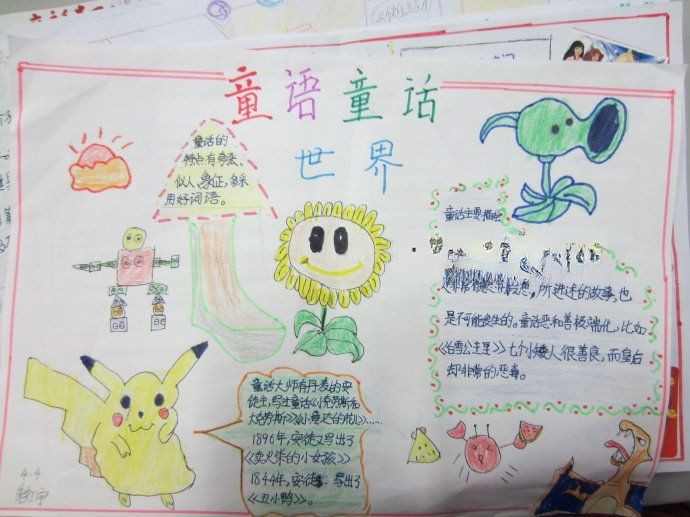 童语童话
世界
童话的
特点有夸张、
似人、象征,多采
用好词语。
童话主要描绘
所讲述的故事,也
是不可能发生的。童话恶和善极端化,比如
《白雪公主里》七个小矮人很善良,而皇后
却非常的恶毒。
童话大师有丹麦的安
徒生,写过童话《小克劳斯和
大克劳斯》《小意达的花》……
1896年,安徒又写出了
《卖火柴的小女孩》
1844年,安徒 写出了
《丑小鸭》。
4-4